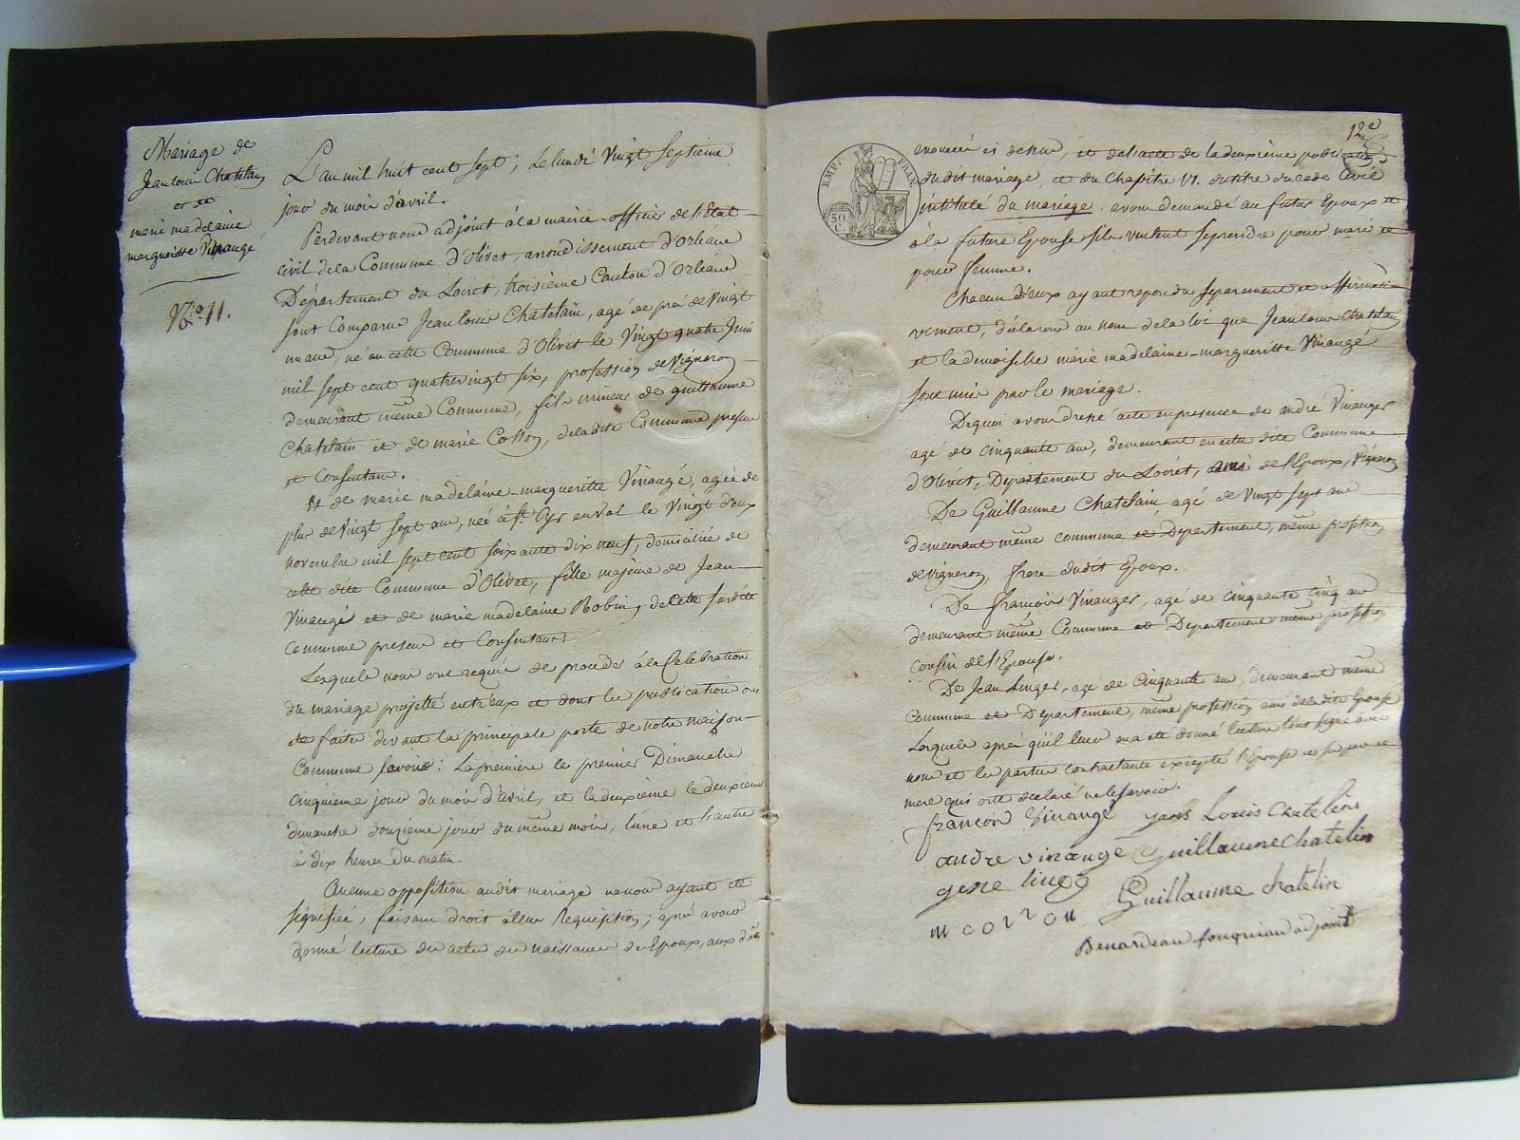 Mariage de
Jean louis Chatelain
et de
marie madelaine
margueritte Vinangé
N.o 11.
L'an mil huit cent sept ; le lundi Vingt Septieme
jour du mois d'avril.
Perdevant nous adjoint à la mairie officier de l'Etat
civil de la Commune d'Olivet, arrondissement d'Orléans
Département du Loiret, troisième Canton d'Orléans
sont Comparus Jean louis Chatelain, agé de près de Vingt
un ans, né en cette Commune d'Olivet le Vingt quatre Juin
mil sept cent quatrevingt six, profession de Vigneron
demeurant même Commune, fils mineur de guillaume
Chatelain et de marie Cosson, de ladite Commune presens
et Consentans.
Et de marie madelaine margueritte Vinangé, agée de
plus de Vingt sept ans, née à St. Cyr en Val le Vingt deux
novembre mil sept cent soixante dix neuf, domiciliée de
cette dite Commune d'Olivet, fille majeure de Jean
Vinangé et de marie madelaine Robin, de cette susdite
Commune presens et Consentans
Lesquels nous ont requis de proceder à la Celebration
du mariage projetté entr'eux et dont les publications ont
été faites devant la principale porte de notre maison
Commune savoir : La premiere le premier Dimanche
cinquieme jour du mois d'avril, et la deuxieme le deuxieme
dimanche douzieme jour du même mois, l'une et l'autre
à dix heures du matin.
Aucune opposition audit mariage ne nous ayant été
signifiée, faisant droit à leur Requisition, après avoir
donné lecture des actes de naissance des Epoux, aux dits
12e
EMP. FRAN.
50 C
enoncés ci dessus, et de l'acte de la deuxième publication
du dit mariage, et du Chapitre VI. du titre du code Civil
intitulé du mariage. avons demandé au futur Epoux et
à la future Epouse s'ils veulent se prendre pour mari et
pour femme.
Chacun d'eux ayant repondu separement et affirmati-
vement, déclarons au nom de la loi que Jean louis Chatelain
et la demoiselle marie madelaine margueritte Vinangé
sont unis par le mariage.
De quoi avons dressé acte en presence de andré Vinanger
agé de cinquante ans, demeurant en cette dite Commune
d'Olivet, Departement du Loiret, ami de l'Epoux, Vigneron
De Guillaume Chatelain agé de Vingt sept ans
demeurant même commune et Departement, même profession
de Vigneron, frere dudit Epoux.
De françois Vinanger, agé de cinquante cinq ans
demeurant même Commune et Departement même profession
cousin de l'Epouse.
De Jean Linger, agé de Cinquante ans, demeurant même
Commune et Departement, même profession ami de ladite Epouse
Lesquels après qu'il leur en a été donné lecture l'ont signé avec
nous et les parties contractantes excepté l'Epouse et ses pere et
mere qui ont declaré ne le savoir.
francois Vinangé jans Louis Chatelein
andre vinange Guillaume chatelin
gene linge Guillaume chatelin
m cosson
Benardeau fouqueau adjoint